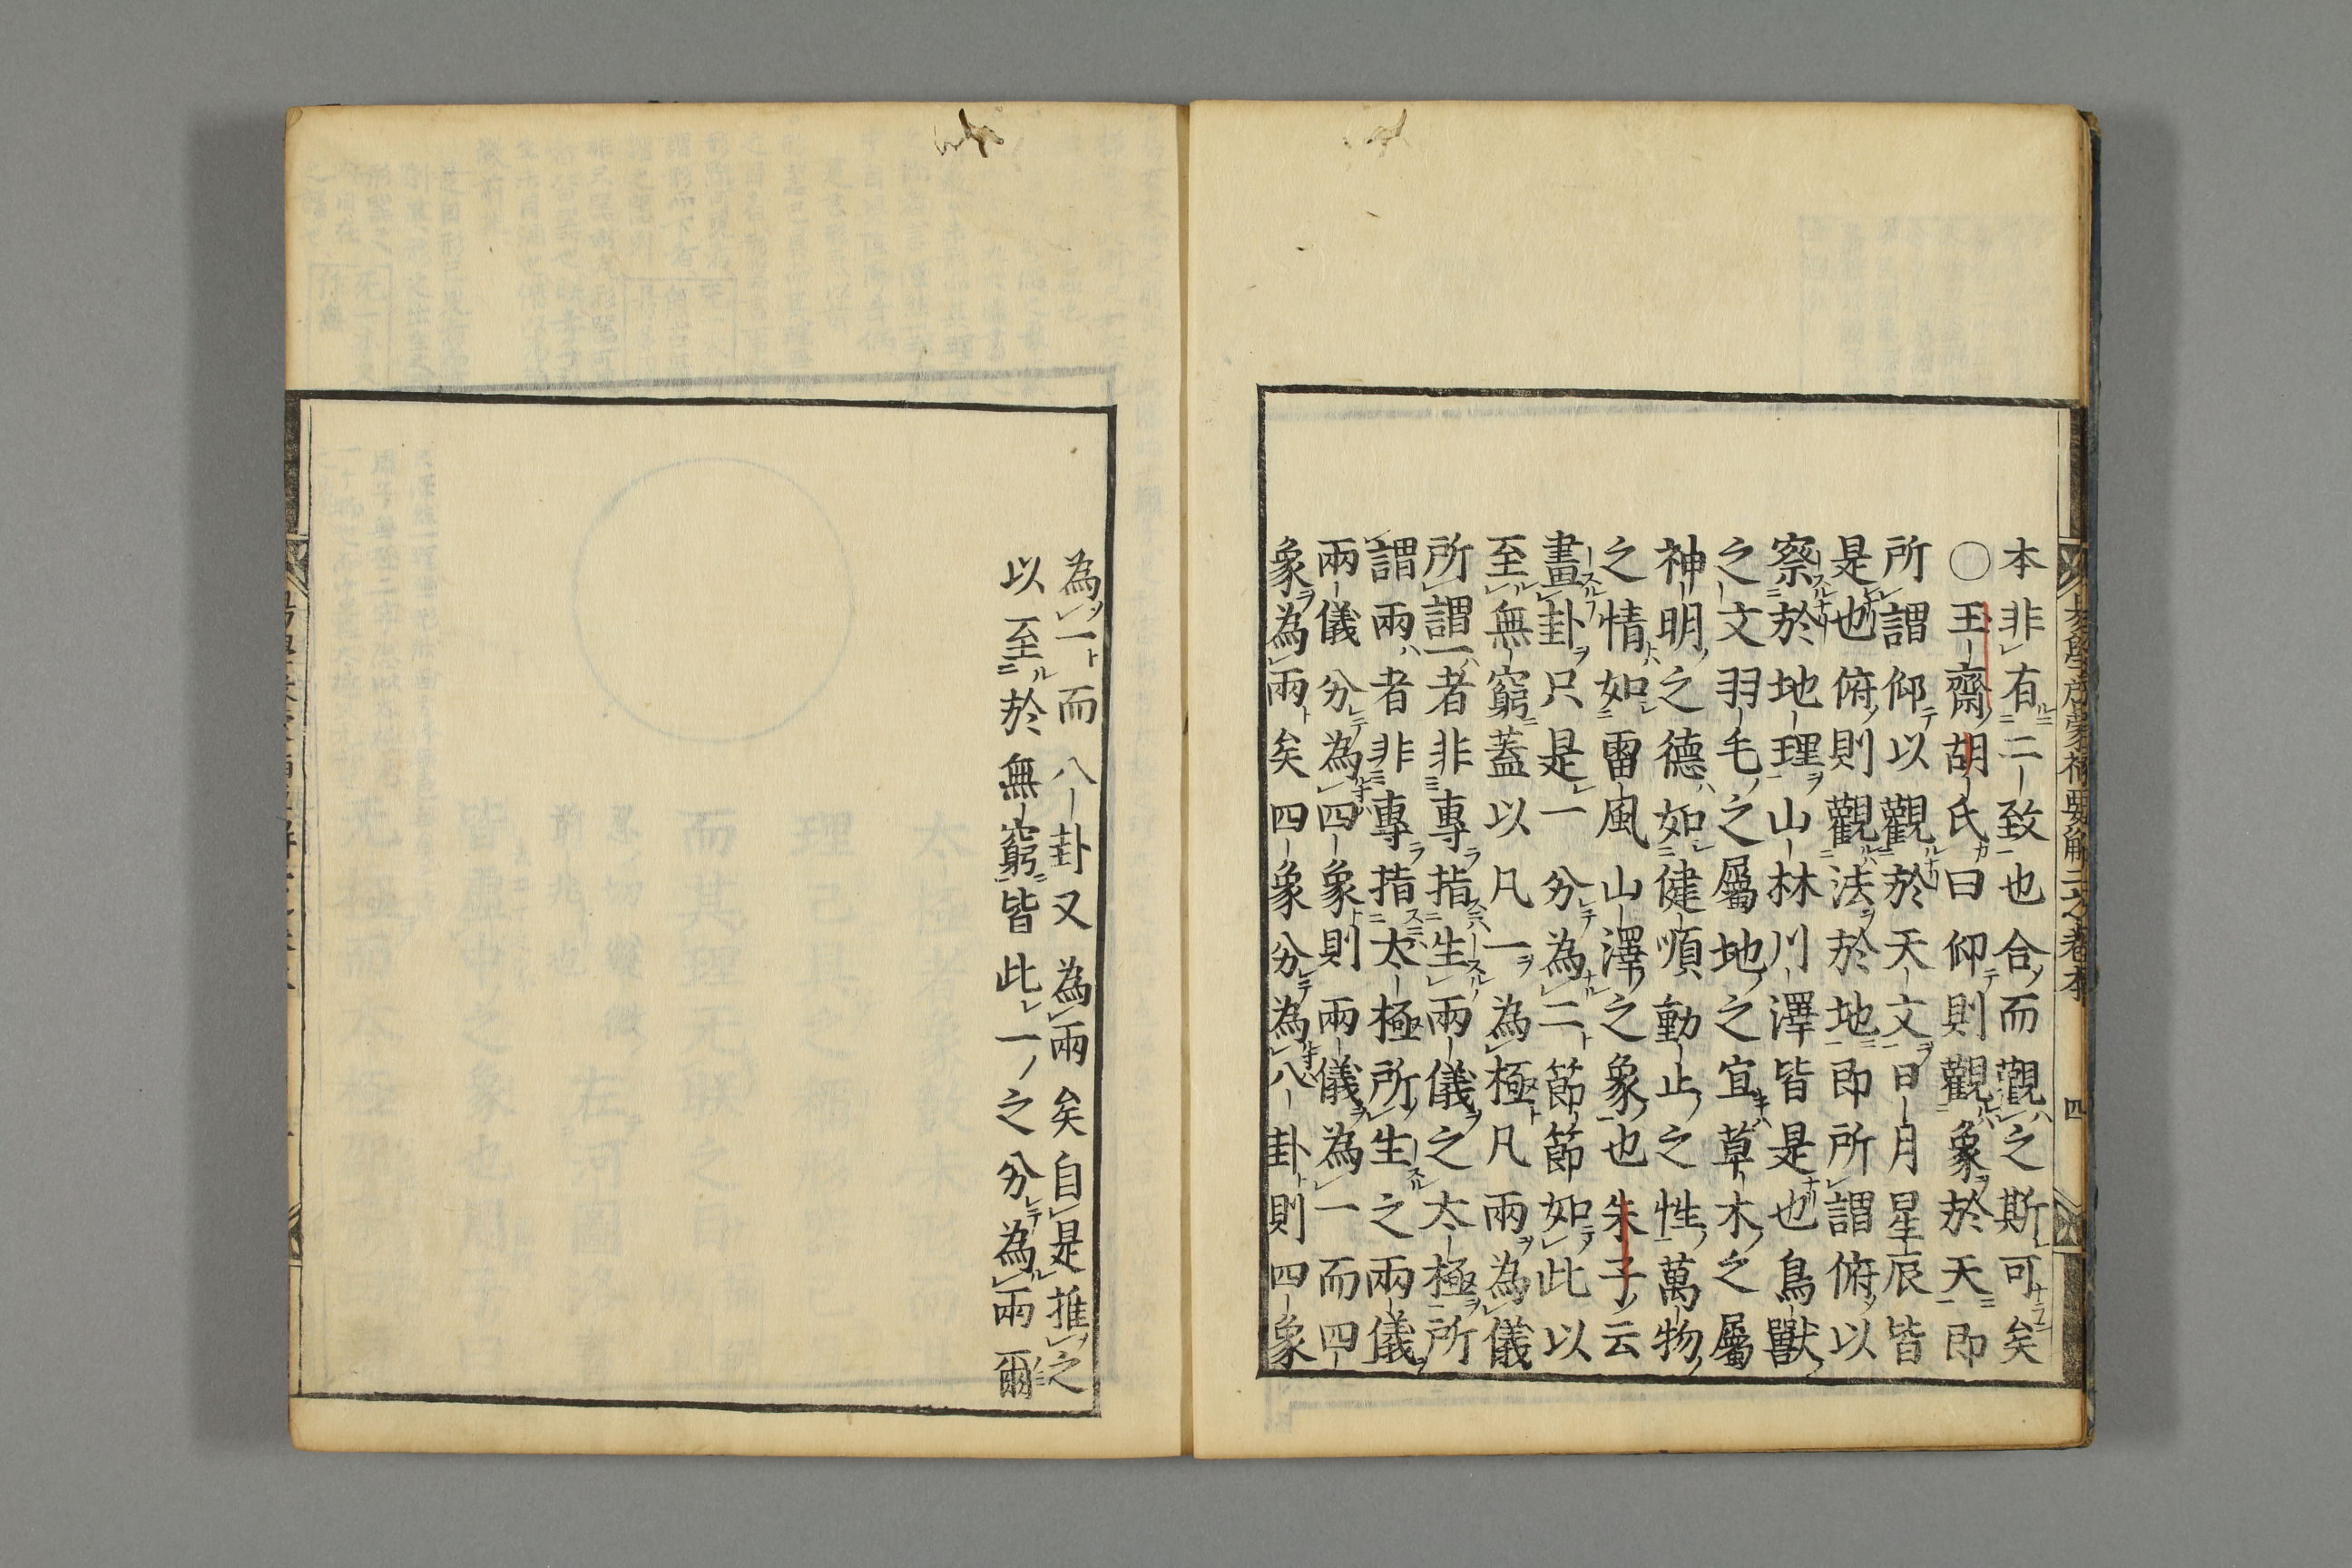 本非有二致也合而觀之斯可矣
○王齋胡氏曰仰則觀象於天即
所謂仰以觀於天文日月星辰皆
是也俯則觀法於地即所謂俯以
察於地理山林川澤皆是也鳥獸
之文羽毛之屬地之宜草木之屬
神明之德如健順動止之性萬物
之情如雷風山澤之象也朱子云
畫卦只是一分為二節節如此以
至無窮蓋以凡一為極凡兩為儀
所謂一者非專指生兩儀之太極所
謂兩者非專指太極所生之兩儀
兩儀分為四象則兩儀為一而四
象為兩矣四象分為八卦則四象
為一而八卦又為兩矣自是推之
以至於無窮皆此一之分為兩爾
四